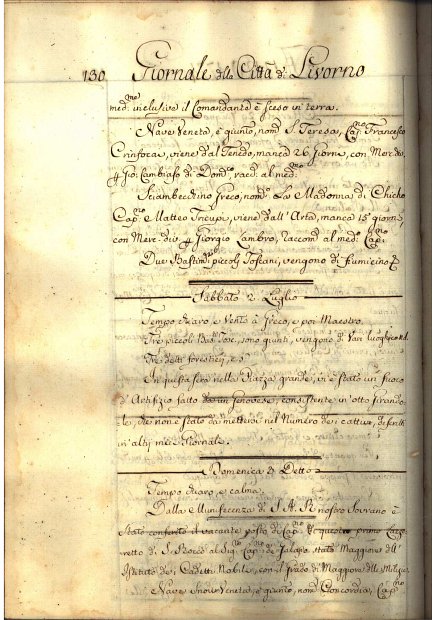 130 Giornale della Città di Livorno
med.mo inclusive il Comandante è sceso in terra.
Nave Veneta, è giunto, nom.a S. Teresa, Cap.no Francesco
viene dal Tenedo, manca 26 giorni, con Merc. div.
p Gio: di Dom.co racc. al med.mo
Sciambecchino Greco, nom.o La Madonna di
Cap.no Matteo Tricupi, viene dall' Arta, manca 15 giorni,
con Merc. div. p Giorgio Lambro, raccom. al med.o Cap.no
Due Bastim.ti piccoli Toscani, vengono di Fiumicino
Sabbato 2 Luglio
Tempo chiaro, e Vento à Greco, e poi Maestro.
Tre piccoli Bas.ti Tos. sono giunti, vengono di Vari luoghi
Tre detti forestieri, e
In questa sera nella Piazza grande, vi è stato un fuoco
d'Artifizio fatto da un Genovese, consistente in otto girando
le, che non è stato da mettersi nel Numero de i cattivi, descritti
in altri miei Giornale.
Domenica 3 Detto
Tempo chiaro, e calma.
Dalla Munificenza di S. A. R. nostro Sovrano è
stato conferito il vacante posto di Cap.no del primo Lazze
retto di S. Rocco al Sig.r Cap.no de stato Maggiore dell'
Istituto de i Cadetti Nobile, con il grado di Maggiore delle Milizie.
Nave Veneta, è giunto, nom. Concordia, Cap.no